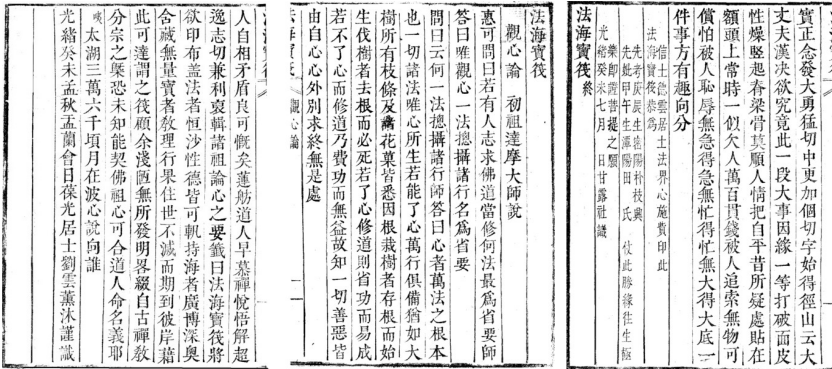 人自相矛盾良可慨矣蓮舫道人早慕禪悅悟解超
逸志切兼利裒輯諸祖論心之要籤曰法海寶筏將
欲印布蓋法者恒沙性德皆可軌持海者廣博深奧
含藏無量寶者敎理行果住世不滅而期到彼岸藉
此可達謂之筏顧余淺陋無所發明畧綴自古禪敎
分宗之槩恐未知能契佛祖心可合道人命名義耶
咦 太湖三萬六千頃月在波心說向誰
光緒癸未孟秋盂蘭會日葆光居士劉雲薰沐謹識
法海寶筏
觀心論 初祖達摩大師說
惠可問曰若有人志求佛道當修何法最爲省要師
答曰唯觀心一法摠攝諸行名爲省要
問曰云何一法摠攝諸行師答曰心者萬法之根本
也一切諸法唯心所生若能了心萬行俱備猶如大
樹所有枝條及諸花菓皆悉因根栽樹者存根而始
生伐樹者去根而必死若了心修道則省功而易成
若不了心而修道乃費功而無益故知一切善惡皆
由自心心外別求終無是處
法海寶筏 觀心論 一
實正念發大勇猛切中更加個切字始得徑山云大
丈夫漢決欲究竟此一段大事因緣一等打破面皮
性燥竪起脊梁骨莫順人情把自平昔所疑處貼在
額頭上常時一似欠人萬百貫錢被人追索無物可
償怕被人恥辱無急得急無忙得忙無大得大底一
件事方有趣向分
信士雲居士法界心施貲印此
法海寶筏恭爲
先考庚辰生密陽朴枝興
先妣甲午生潭陽田 氏 伏此勝緣往生極
樂卽證菩提之願
光緒癸未七月 日甘露社識
法海寶筏 終